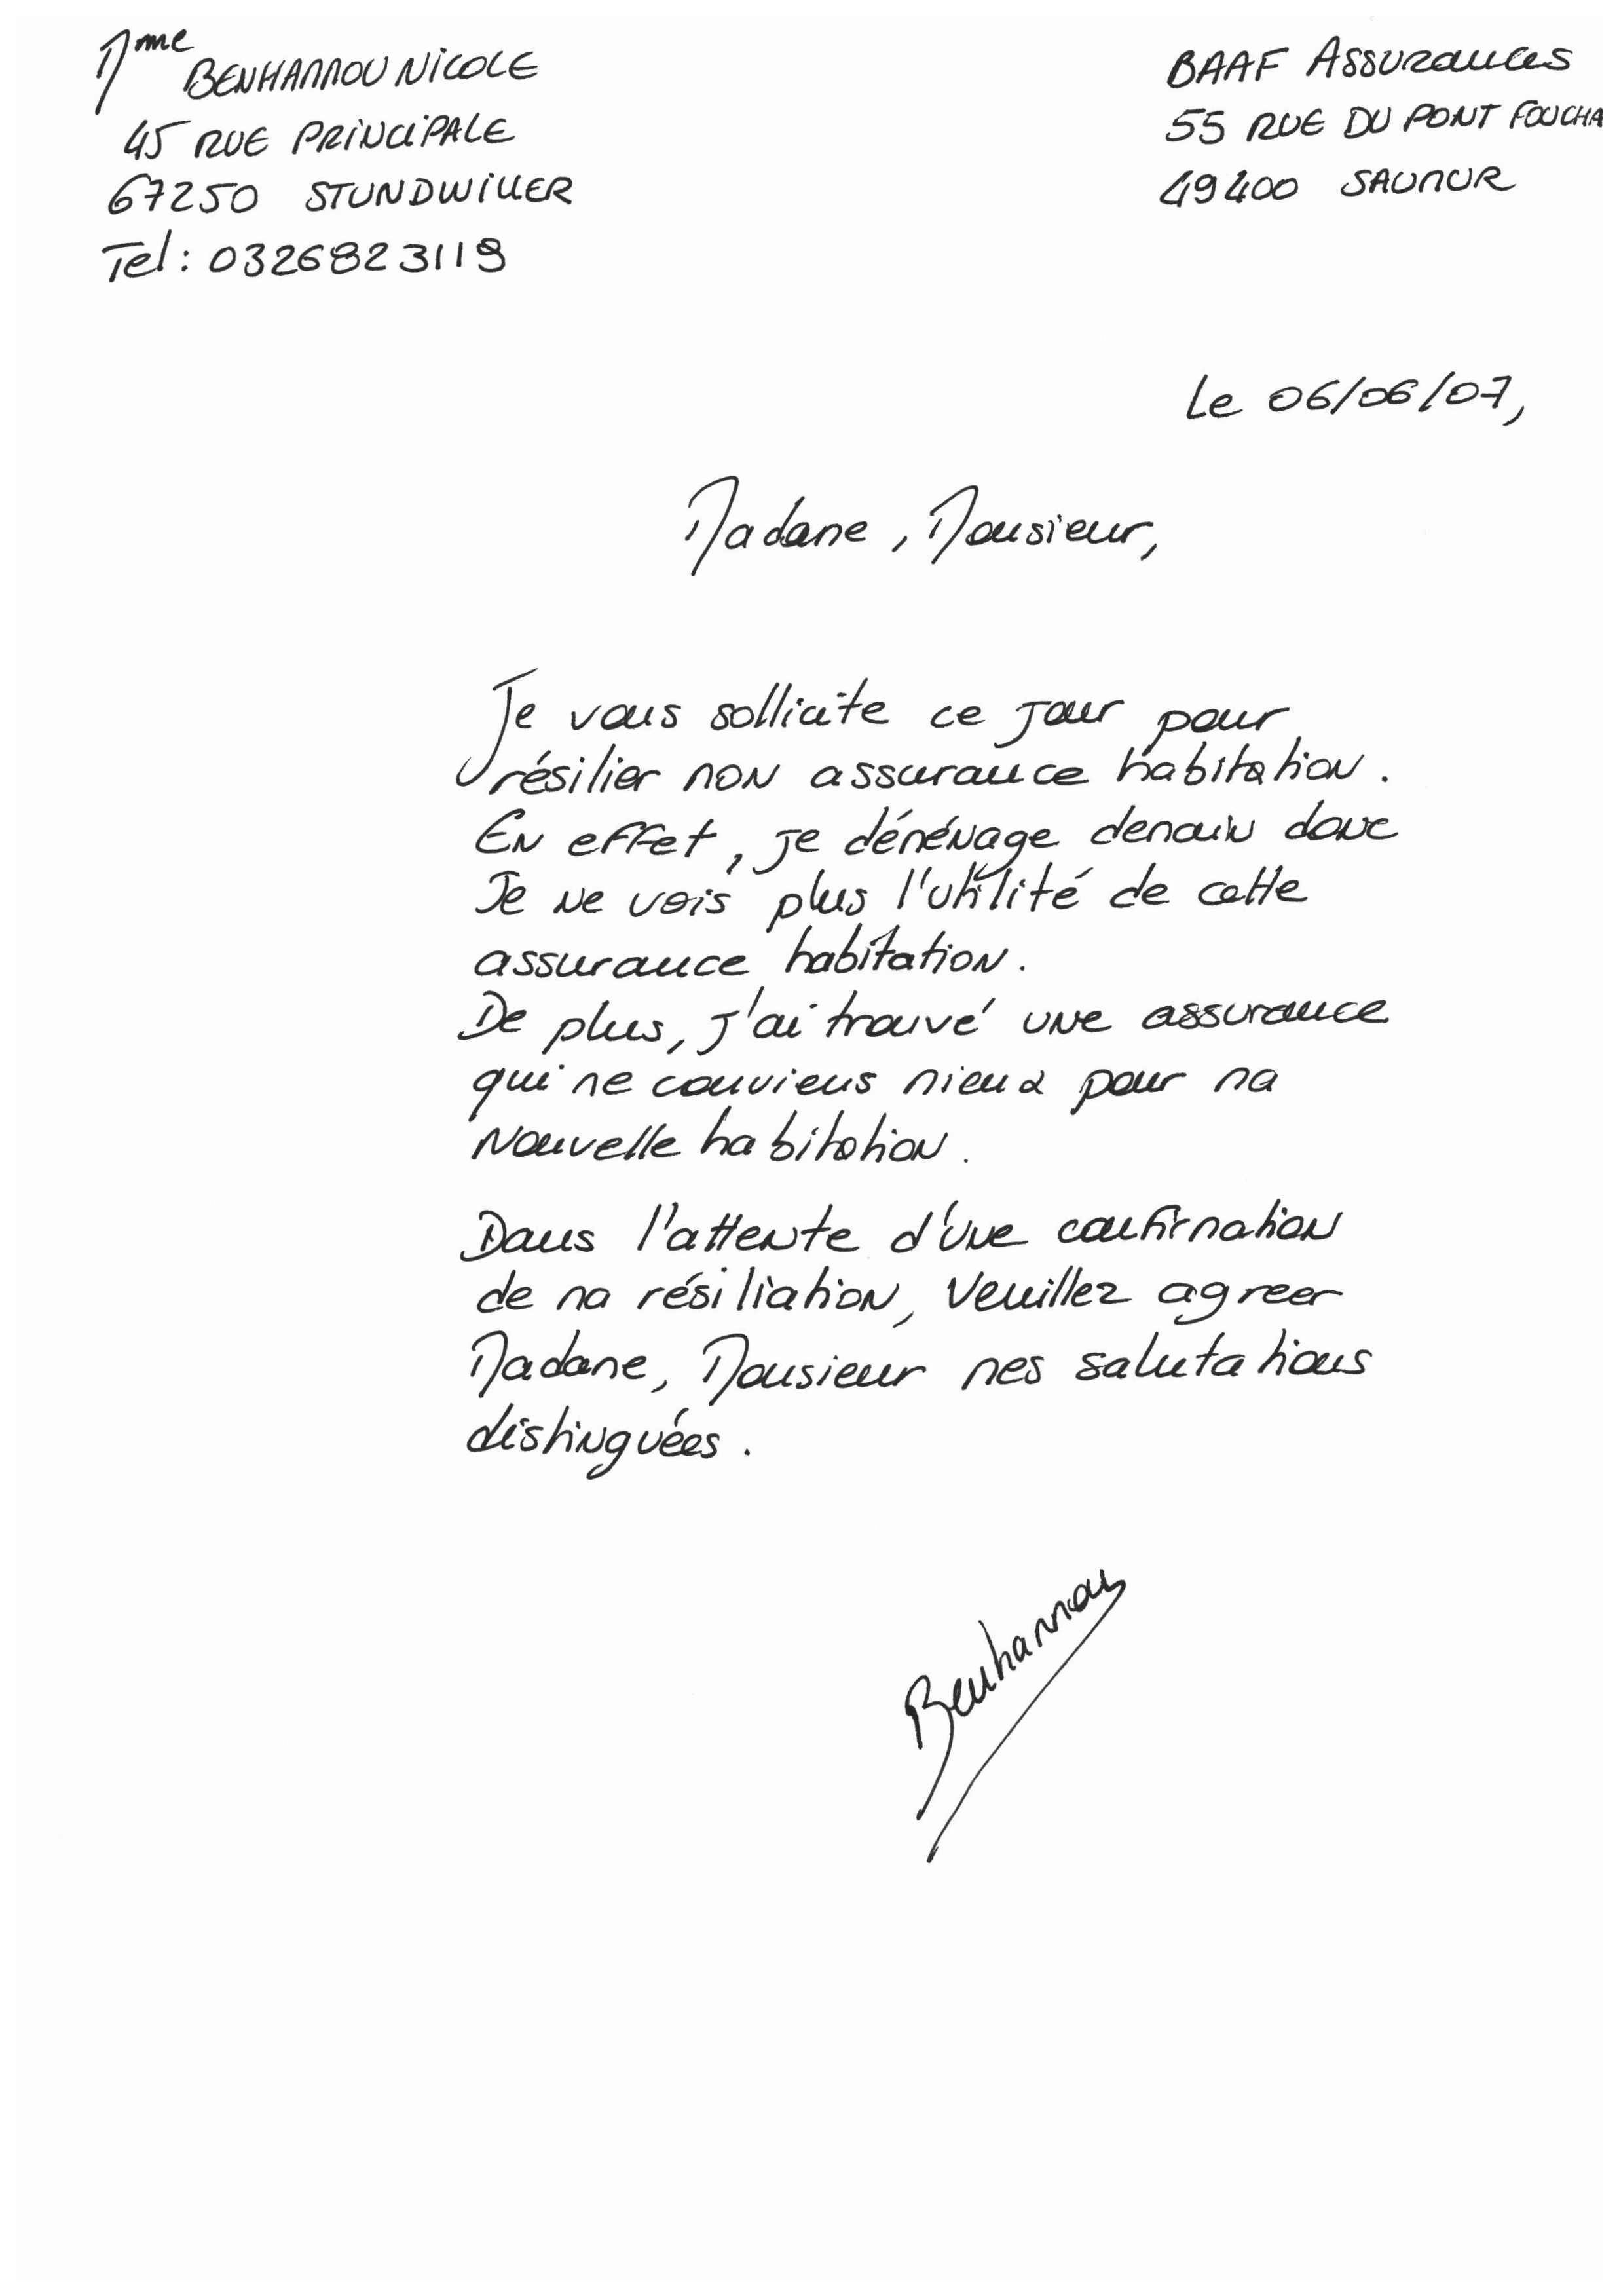 Mme BENHAMMOU NICOLE
45 RUE PRINCIPALE
67250 STUNDWILLER
Tel : 0326823119
BAAF Assurances
55 RUE DU PONT FOUCHA
49400 SAUMUR
Le 06/06/07,
Madame, Monsieur,
Je vous sollicite ce jour pour
résilier mon assurance habitation.
En effet, je déménage demain donc
Je ne vois plus l'utilité de cette
assurance habitation.
De plus, j'ai trouvé une assurance
qui me conviens mieux pour ma
Nouvelle habitation.
Dans l'attente d'une confirmation
de ma résiliation, veuillez agreer
Madame, Monsieur mes salutations
distinguées.
Benhammou